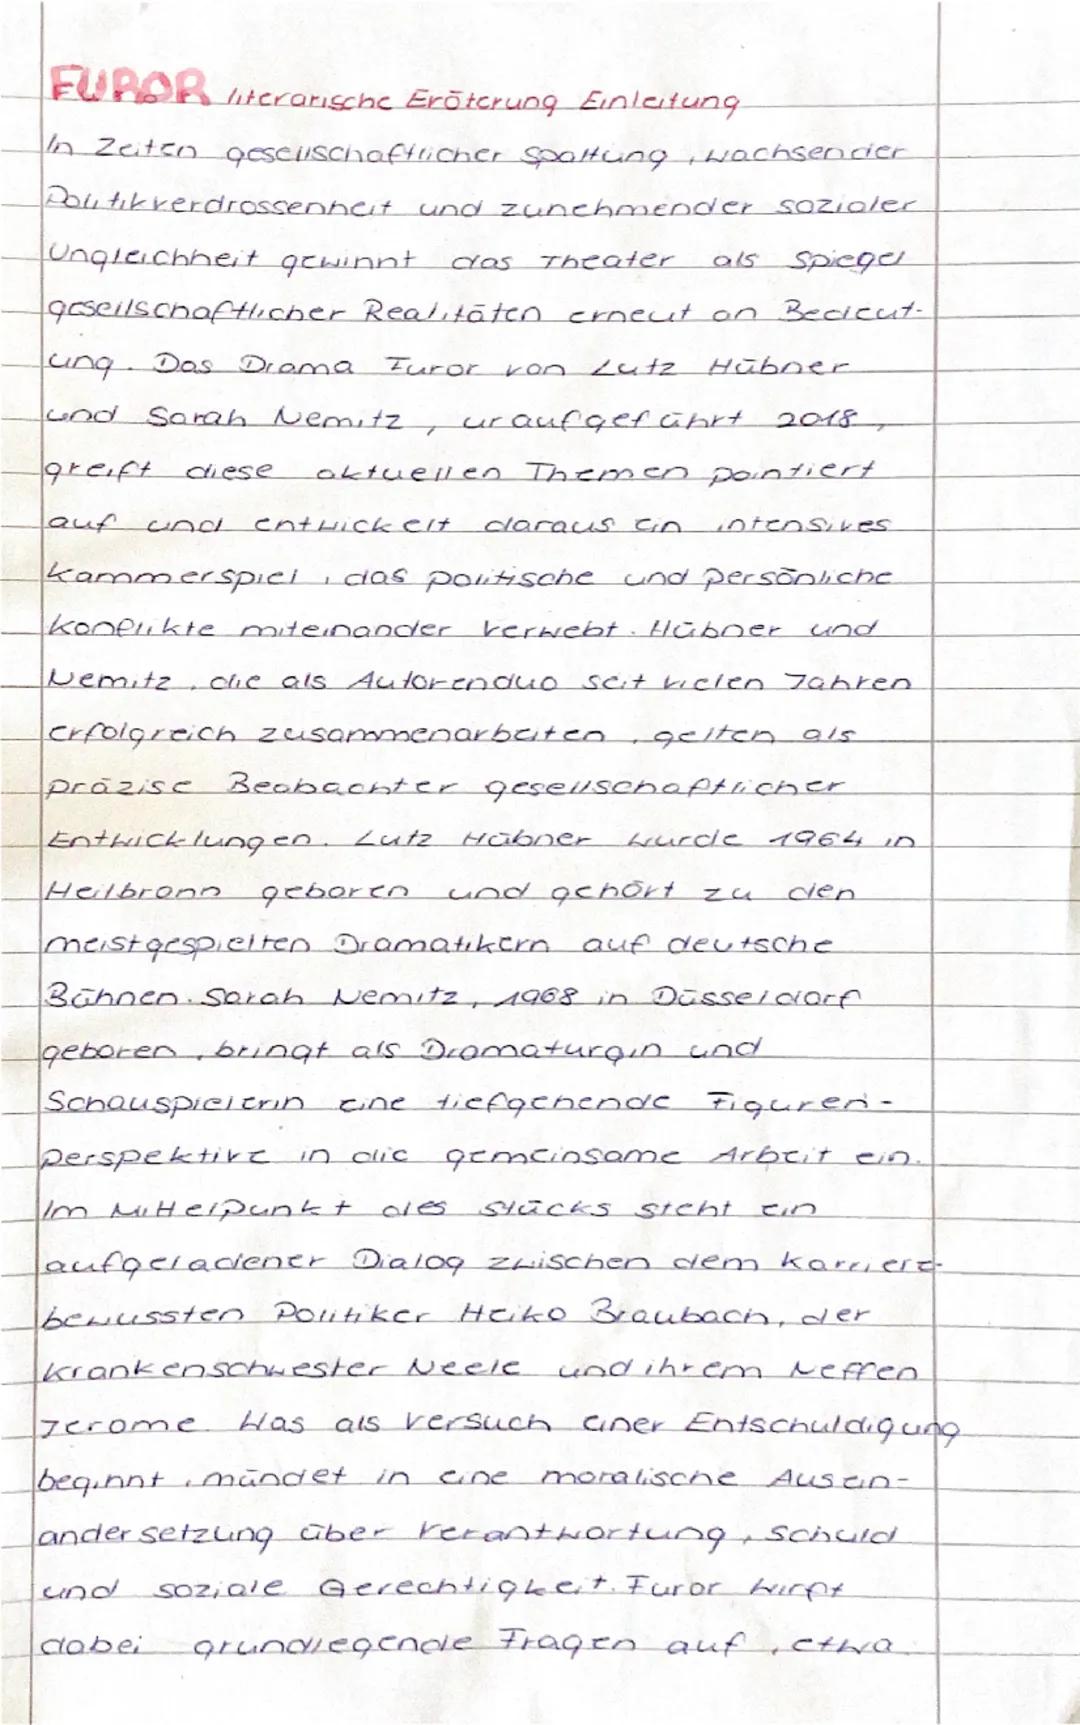 FUROR literarische Erörterung Einleitung
In Zeiten gesellschaftlicher Spaltung, wachsender
Politikverdrossenheit und zunehmender sozialer
Ungleichheit gewinnt das Theater als Spiegel
gesellschaftlicher Realitäten erneut an Bedeut-
ung. Das Drama Furor von Lutz Hübner
und Sarah Nemitz, uraufgeführt 2018,
greift diese aktuellen Themen pointiert
auf und entwickelt daraus ein intensives
Kammerspiel, das politische und persönliche
Konflikte miteinander verwebt. Hübner und
Nemitz, die als Autorenduo seit vielen Jahren
erfolgreich zusammenarbeiten, gelten als
präzise Beobachter gesellschaftlicher
Entwicklungen. Lutz Hübner wurde 1964 in
Heilbronn geboren und gehört zu den
meistgespielten Dramatikern auf deutsche
Bühnen. Sarah Nemitz, 1968 in Düsseldorf
geboren, bringt als Dramaturgin und
Schauspielerin eine tiefgehende Figuren-
perspektive in die gemeinsame Arbeit ein.
Im Mittelpunkt des Stücks steht ein
aufgeladener Dialog zwischen dem karriere-
bewussten Politiker Heiko Braubach, der
Krankenschwester Neele und ihrem Neffen
Jerome. Was als Versuch einer Entschuldigung
beginnt, mündet in eine moralische Ausein-
andersetzung über Verantwortung, Schuld
und soziale Gerechtigkeit. Furor wirft
dabei grundlegende Fragen auf, etwa